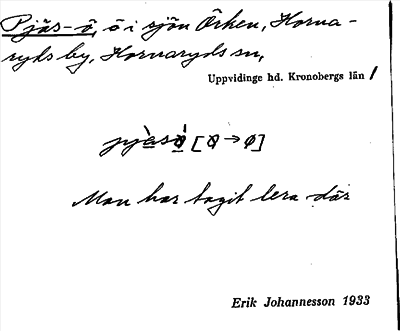 Pjäs-ö, ö i sjön Örken, Horna-
ryds by, Hornaryds sn,
Uppvidinge hd. Kronobergs län
Man har tagit lera där
Erik Johannesson 1933